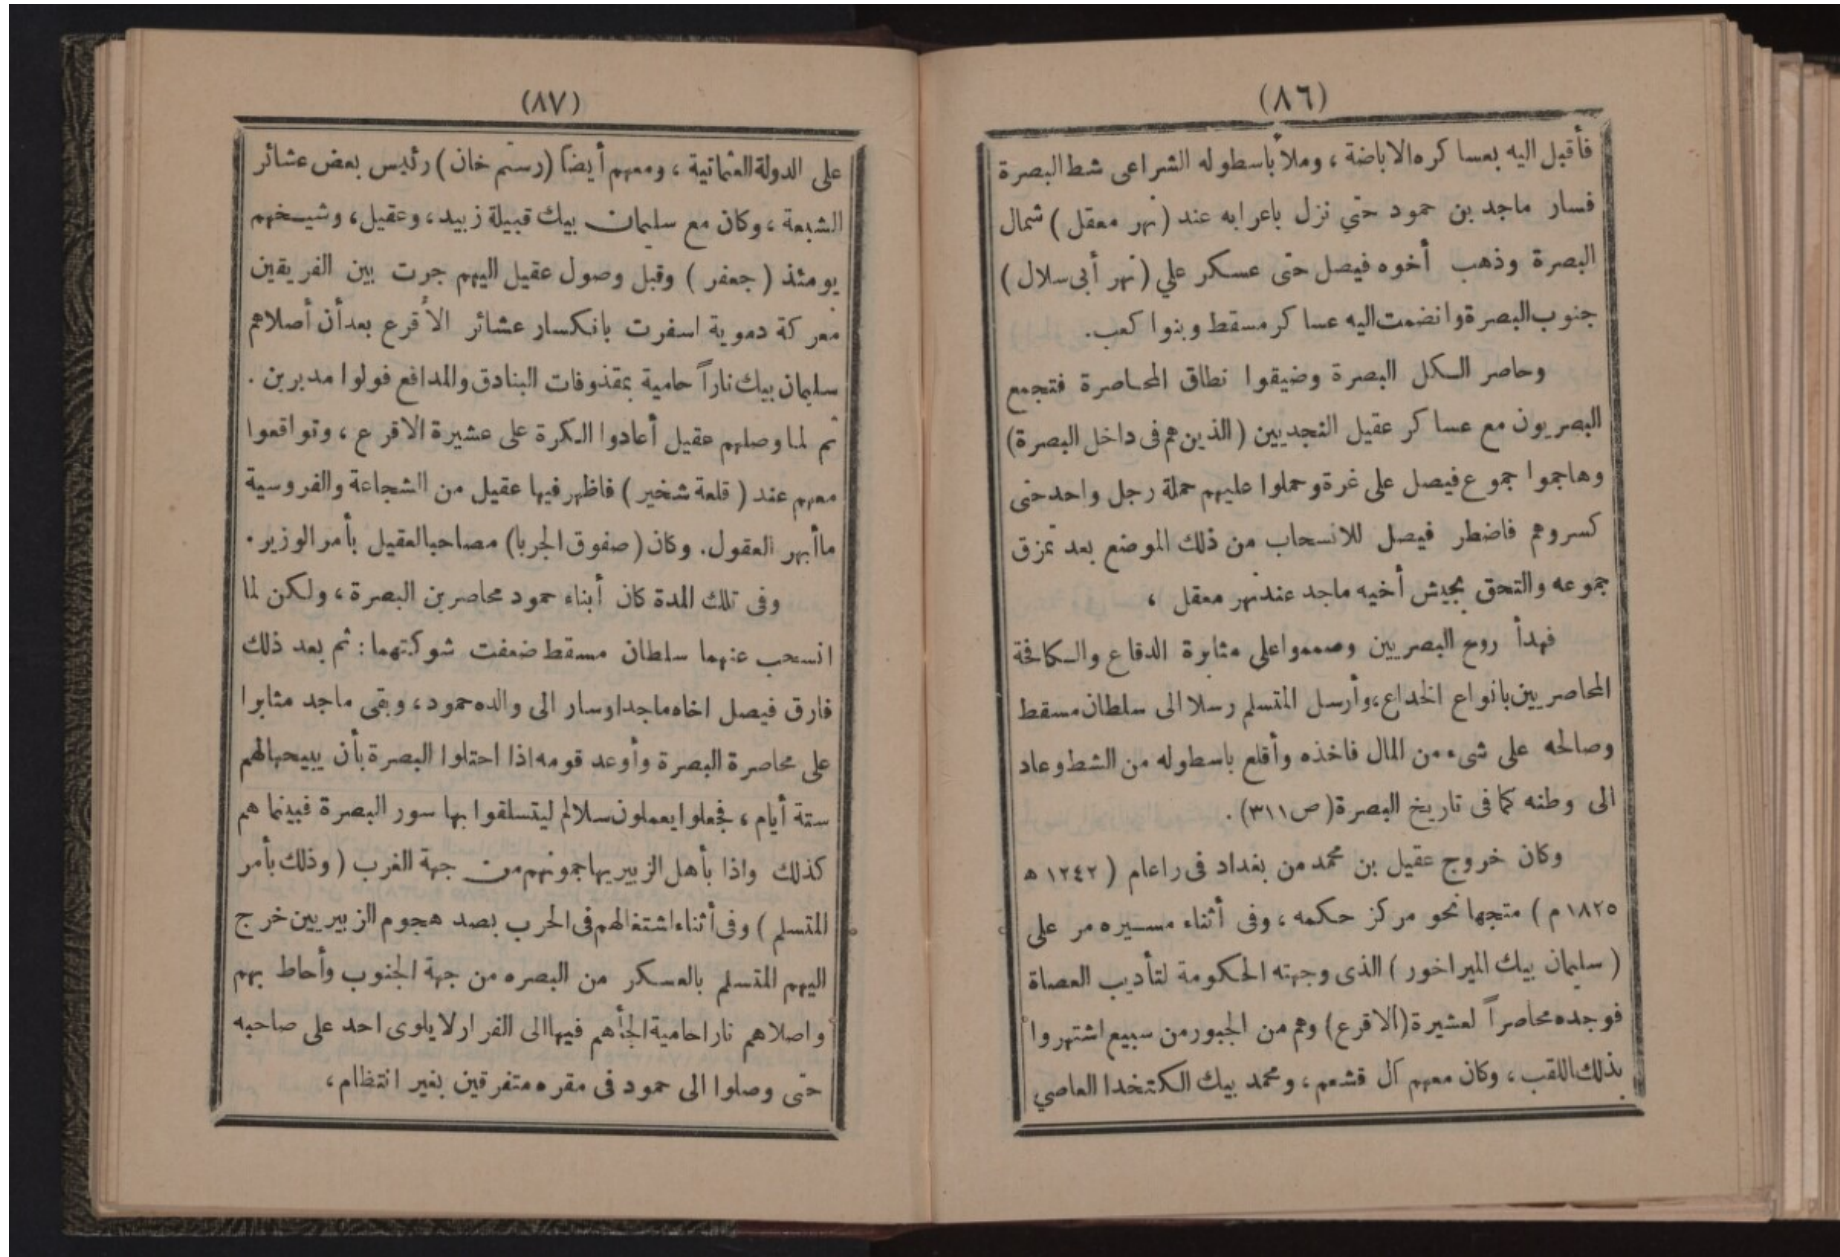 (٨٦)
فأقبل اليه بعساكره الاباضة ، وملأ بأسطوله الشراعى شط البصرة
فسار ماجد بن حمود حتي نزل باعرابه عند ( نهر معقل ) شمال
البصرة وذهب أخوه فيصل حتى عسكر علي ( نهر أبى سلال )
جنوب البصرة وانضمت اليه عساكر مسقط وبنوا كعب.
وحاصر الكل البصرة وضيقوا نطاق المحاصرة فتجمع
البصريون مع عساكر عقيل النجديين ( الذين هم فى داخل البصرة )
وهاجموا جموع فيصل على غرة وحملوا عليهم حملة رجل واحد حتى
كسروهم فاضطر فيصل للانسحاب من ذلك الموضع بعد تمزق
جموعه والتحق بجيش أخيه ماجد عند نهر معقل ،
فهدأ روع البصريين وصمموا على مثابرة الدفاع والمكافحة
المحاصريين بانواع الخداع، وأرسل المتسلم رسلا الى سلطان مسقط
وصالحه على شىء من المال فاخذه وأقلع باسطوله من الشط وعاد
الى وطنه كما فى تاريخ البصرة ( ص ٣١١ ) .
وكان خروج عقيل بن محمد من بغداد فى راعام ( ١٢٤٢ ه
١٨٢٥ م ) متجها نحو مركز حكمه ، وفى أثناء مسيره مر على
( سليمان بيك الميراخور ) الذى وجهته الحكومة لتأديب العصاة
فوجده محاصراً لعشيرة (الاقرع) وهم من الجبور من سبيع اشتهروا
بذلك اللقب ، وكان معهم آل قشعم ، ومحمد بيك الكتخدا العاصي
(٨٧)
على الدولة العثمانية ، ومعهم أيضاً ( رستم خان ) رئيس بعض عشائر
الشيعة ، وكان مع سليمان بيك قبيلة زبيد ، وعقيل ، وشيخهم
يومئذ ( جعفر ) وقبل وصول عقيل اليهم جرت بين الفريقين
معركة دموية اسفرت بانكسار عشائر الأقرع بعد أن أصلاهم
سليمان بيك ناراً حامية بمقذوفات البنادق والمدافع فولوا مدبرين .
ثم لما وصلهم عقيل أعادوا الكرة على عشيرة الاقرع ، وتواقعوا
معهم عند ( قلعة شخير ) فاظهر فيها عقيل من الشجاعة والفروسية
ماأبهر العقول. وكان ( صفوق الجربا ) مصاحبا لعقيل بأمر الوزير .
وفى تلك المدة كان أبناء حمود محاصرين البصرة ، ولكن لما
انسحب عنهما سلطان مسقط ضعفت شوكتهما : ثم بعد ذلك
فارق فيصل اخاه ماجدا وسار الى والده حمود ، وبقى ماجد مثابرا
على محاصرة البصرة وأوعد قومه اذا احتلوا البصرة بأن يبيحها لهم
ستة أيام ، فجعلوا يعملون سلالم ليتسلقوا بها سور البصرة فبينما هم
كذلك واذا بأهل الزبير يهاجمونهم من جهة الغرب ( وذلك بأمر
المتسلم ) وفى أثناء اشتغالهم فى الحرب بصد هجوم الزبيريين خرج
اليهم المتسلم بالعسكر من البصره من جهة الجنوب وأحاط بهم
واصلاهم نارا حامية الجأهم فيها الى الفرار لا يلوى احد على صاحبه
حتى وصلوا الى حمود فى مقره متفرقين بغير انتظام ،